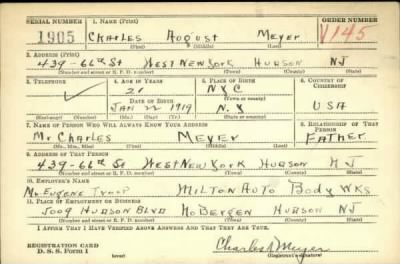 SERIAL NUMBER 1. NAME (Print) ORDER NUMBER
1905 CHARLES AUGUST MEYER V145
(First) (Middle) (Last)
2. ADDRESS (Print)
439-66th St WEST NEW YORK HUDSON NJ
(Number and street or R. F. D. number) (Town) (County) (State)
3. TELEPHONE 4. AGE IN YEARS 5. PLACE OF BIRTH 6. COUNTRY OF CITIZENSHIP
21 NYC
DATE OF BIRTH (Town or county)
JAN 22 1919 N.Y USA
(Mo.) (Day) (Yr.) (State or country)
7. NAME OF PERSON WHO WILL ALWAYS KNOW YOUR ADDRESS 8. RELATIONSHIP OF THAT PERSON
Mr CHARLES MEYER FATHER
(Mr., Mrs., Miss) (First) (Middle) (Last)
9. ADDRESS OF THAT PERSON
439-66th St WEST NEW YORK HUDSON NJ
(Number and street or R. F. D. number) (Town) (County) (State)
10. EMPLOYER'S NAME
Mr. EUGENE MILTON AUTO BODY WKS
11. PLACE OF EMPLOYMENT OR BUSINESS
5009 HUDSON BLVD NO BERGEN HUDSON NJ
(Number and street or R. F. D. number) (Town) (County) (State)
I AFFIRM THAT I HAVE VERIFIED ABOVE ANSWERS AND THAT THEY ARE TRUE.
REGISTRATION CARD
D. S. S. Form 1 (over) Charles A Meyer
(Registrant's signature)